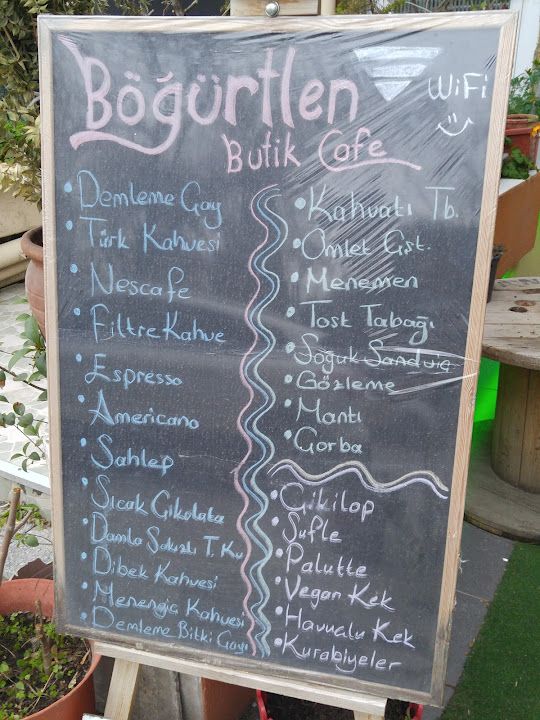 Böğürtlen
Butik Cafe
WiFi
Demleme Çay
Türk Kahvesi
Nescafe
Filtre Kahve
Espresso
Americano
Sahlep
Sıcak Çikolata
Damla Sakızlı T. Kv
Dibek Kahvesi
Menengiç Kahvesi
Demleme Bitki Çayı
Kahvaltı Tb.
Omlet Çşt.
Menemen
Tost Tabağı
Soğuk Sandviç
Gözleme
Mantı
Çorba
Çikilop
Sufle
Palutte
Vegan Kek
Havuçlu Kek
Kurabiyeler